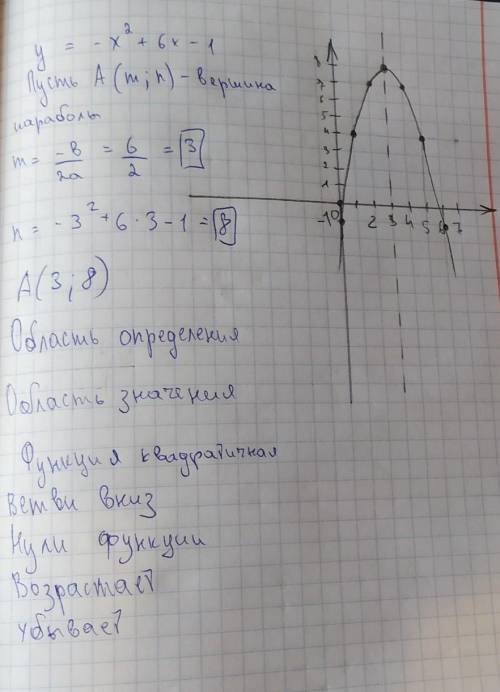 y = -x² + 6x - 1
Пусть A (m; n) - вершина
параболы
m = -в/2a = 6/2 = 3
n = -3² + 6·3 - 1 = 8
A(3; 8)
Область определения
Область значения
Функция квадратичная
Ветви вниз
Нули функции
Возрастает
Убывает
8
7
6
5
4
3
2
1
-1 0 2 3 4 5 6 7